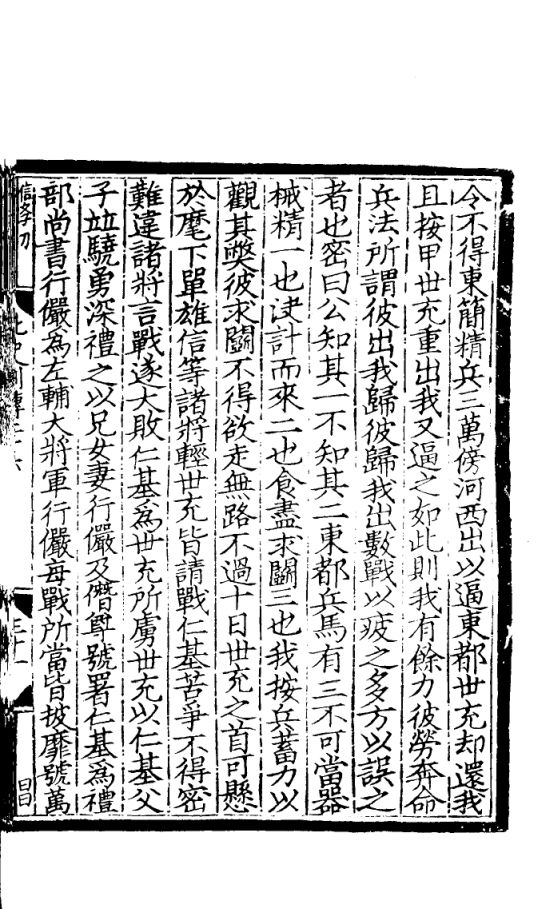 令不得東簡精兵三萬傍河西出以逼東都世充却還我
且按甲世充重出我又逼之如此則我有餘力彼勞奔命
兵法所謂彼出我歸彼歸我出數戰以疲之多方以誤之
者也密曰公知其一不知其二東都兵馬有三不可當器
械精一也决計而來二也食盡求鬬三也我按兵蓄力以
觀其獘彼求鬬不得欲走無路不過十日世充之首可懸
於麾下單雄信等諸將輕世充皆請戰仁基苦爭不得密
難違諸將言戰遂大敗仁基爲世充所虜世充以仁基父
子並驍勇深禮之以兄女妻行儼及僭尊號署仁基爲禮
部尚書行儼為左輔大將軍行儼每戰所當皆披靡號萬
信字刀
北史列傳二十六
三十一
昌